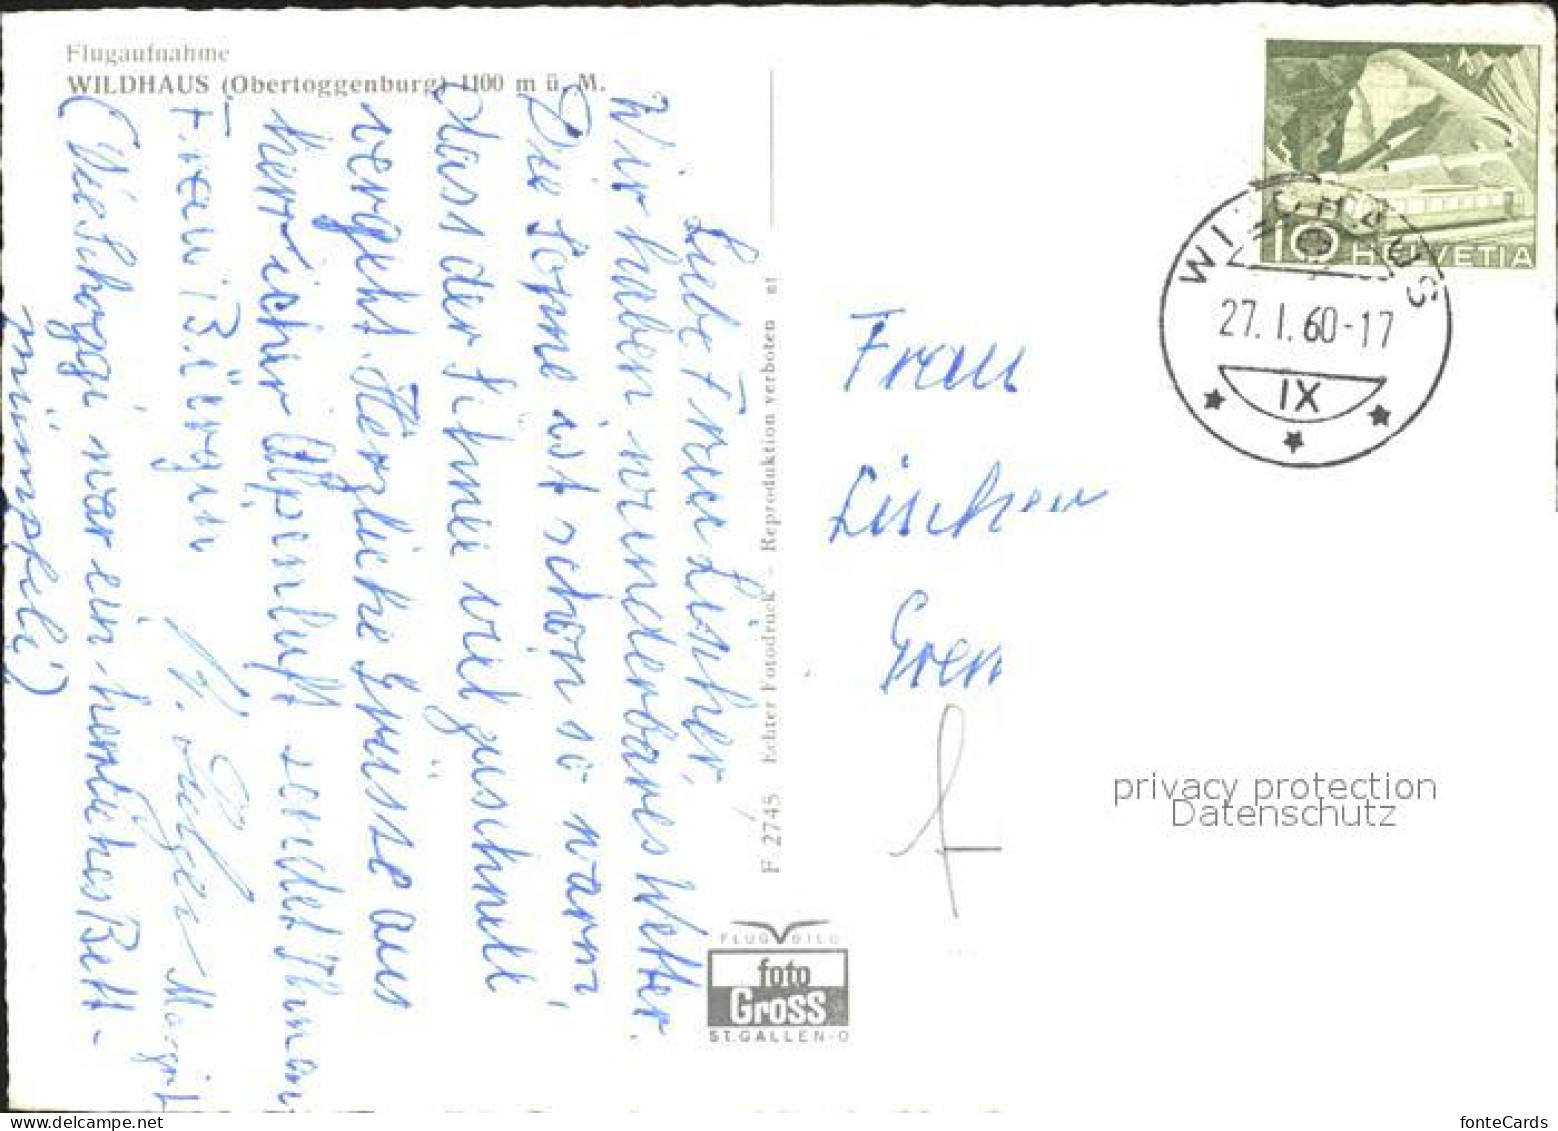 Flugaufnahme
WILDHAUS (Obertoggenburg) 1100 m ü. M.
Liebe Frau Lischer,
Wir haben wunderbares Wetter.
Die Sonne ist schon so warm,
dass der Schnee viel zu schnell
vergeht. Herzliche Grüsse aus
herrlicher Alpenluft sendet Ihnen
Frau Bürgin
Margrit
(Die Schoggi war ein herrliches Bett-
mümpfeli)
F 2745 Echter Fotodruck – Reproduktion verboten
FLUGBILD
foto
Gross
ST.GALLEN-O
10 HELVETIA
WILDHAUS
27. I. 60-17
IX
Frau
Lischer
Gren
privacy protection
Datenschutz
fonteCards